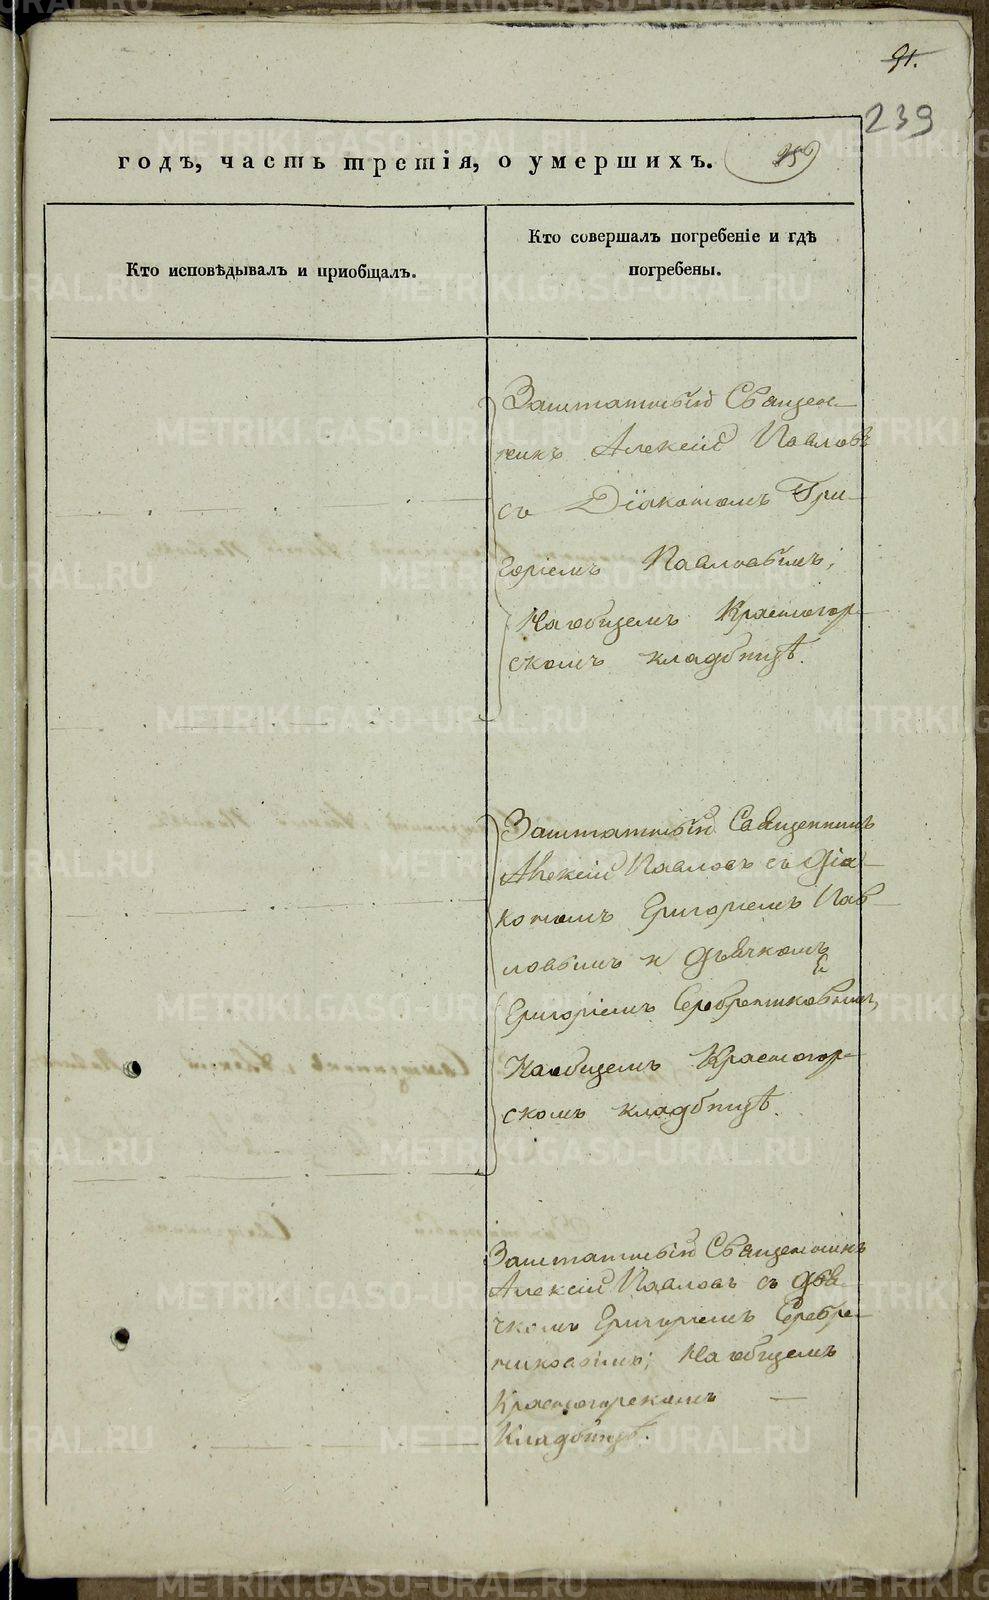 91.
239
годъ, часть третія, о умершихъ.
Кто исповѣдывалъ и пріобщалъ.
Кто совершалъ погребеніе и гдѣ
погребены.
Заштатный Священ-
никъ Алексій Павловъ
съ Діакономъ Гри-
горіемъ Павловымъ;
На общемъ Красногор-
скомъ кладбищѣ.
Заштатный Священникъ
Алексій Павловъ съ Діа-
кономъ Григоріемъ Пав-
ловымъ и Дьячкомъ
Григоріемъ Серебренниковымъ,
На общемъ Красногор-
скомъ кладбищѣ.
Заштатный Священникъ
Алексій Павловъ съ Дья-
чкомъ Григоріемъ Серебре-
никовымъ; На общемъ
Красногорскомъ —
Кладбищѣ.
METRIKI.GASO-URAL.RU